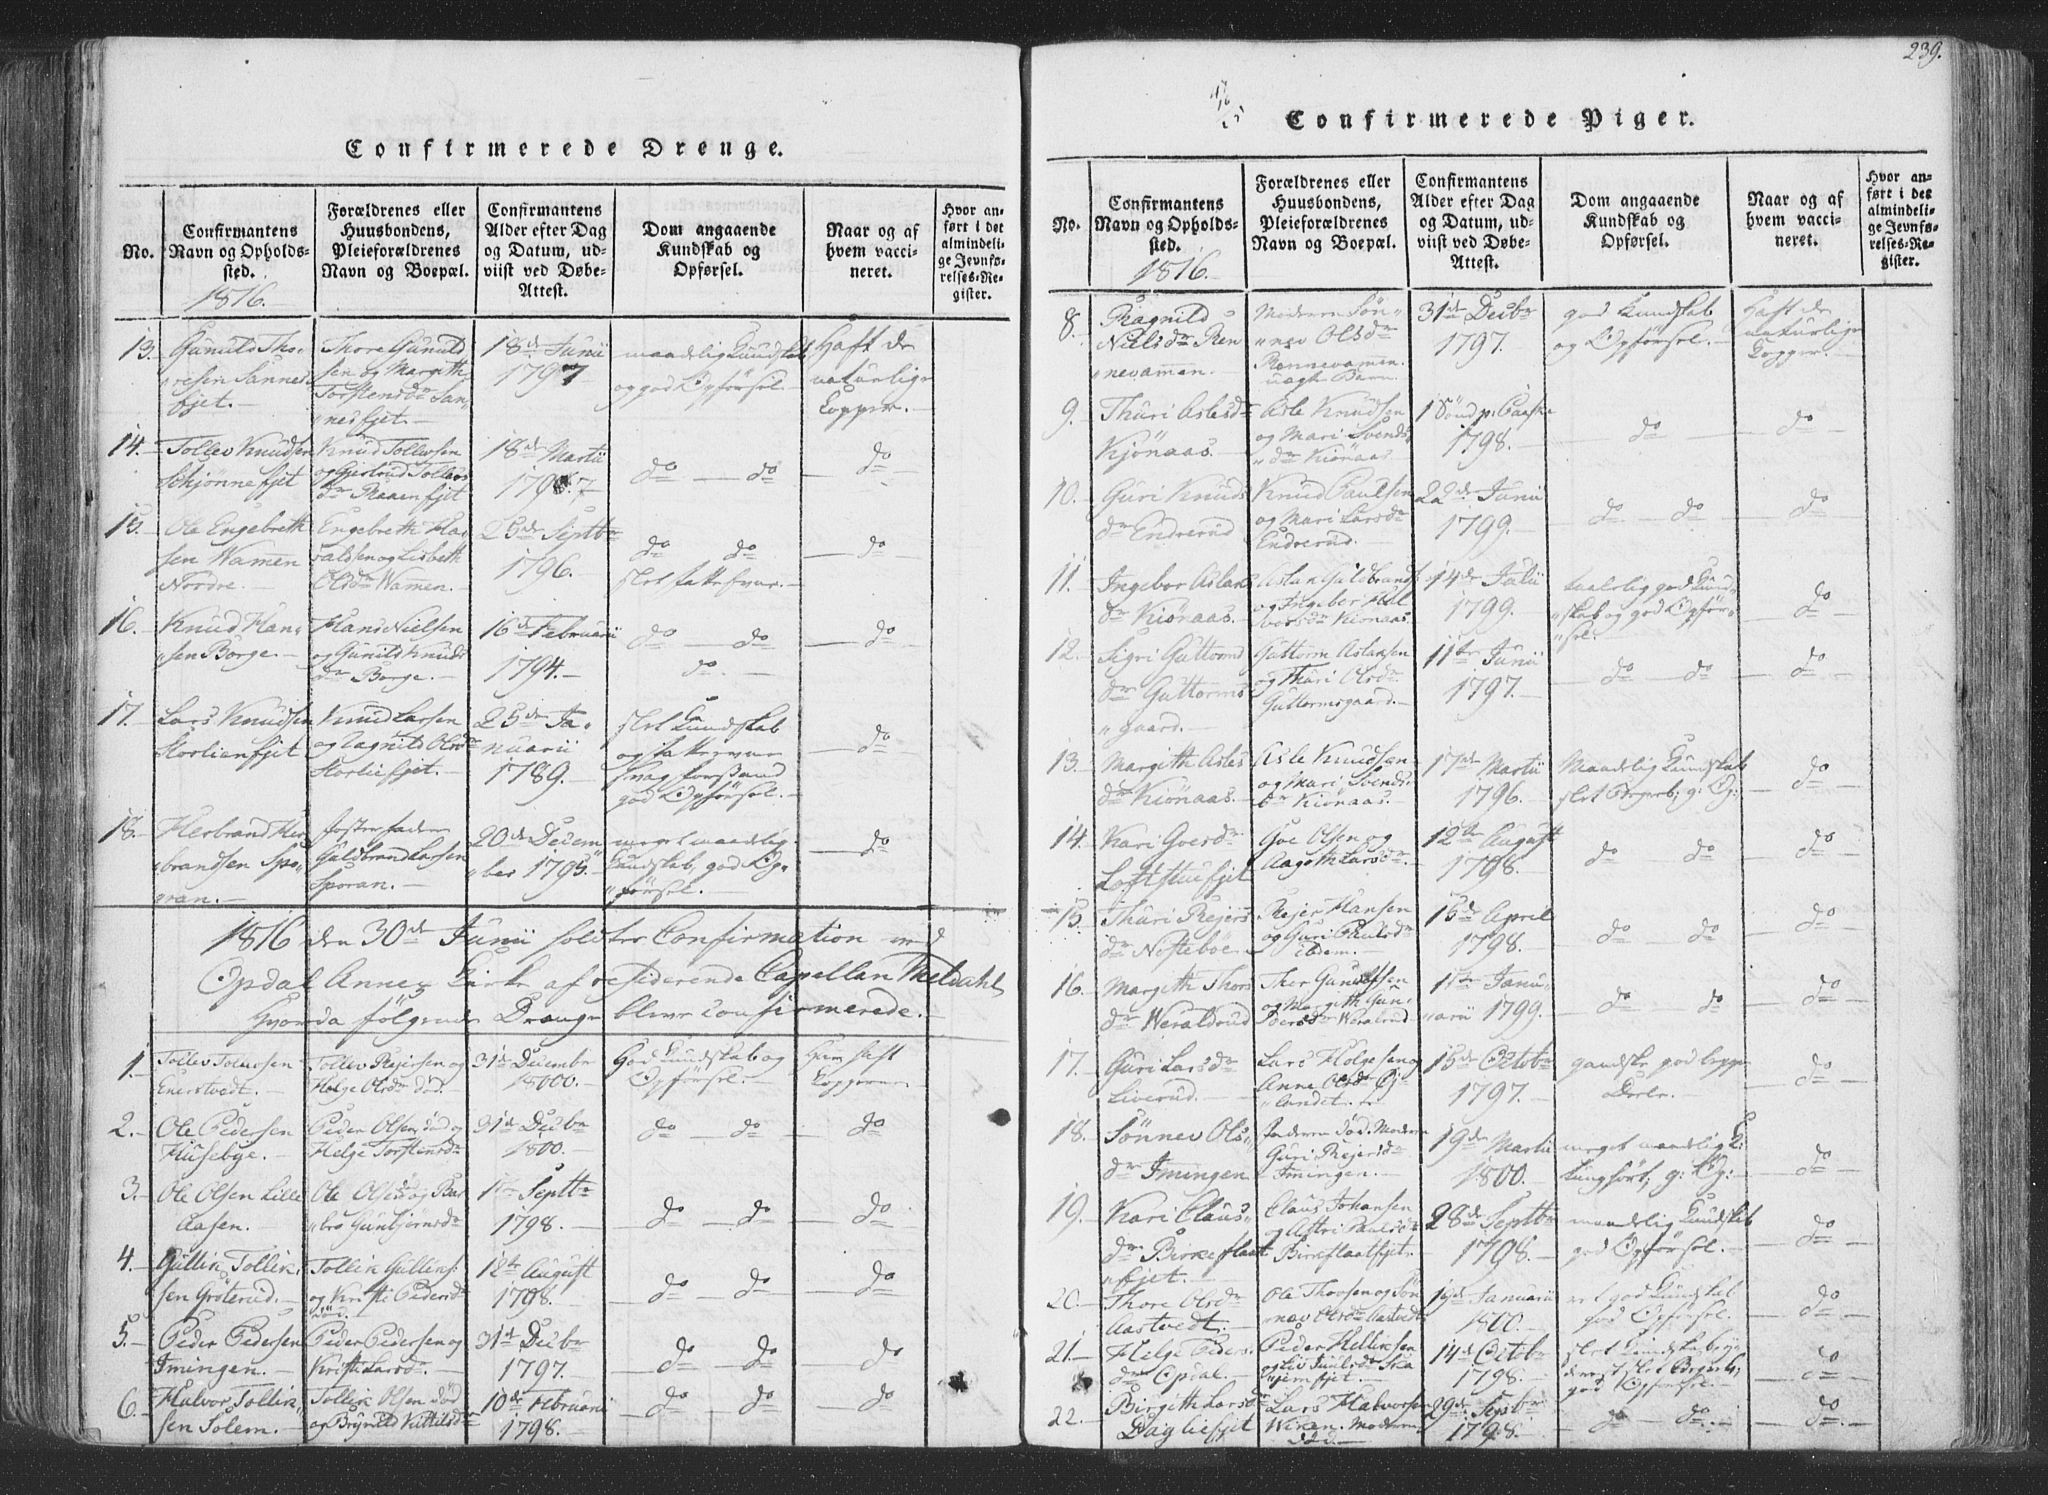 Confirmerede Drenge.
No.
Confirmantens
Navn og Opholds-
sted.
1816.
Forældrenes eller
Huusbondens,
Pleieforældrenes
Navn og Boepæl.
Confirmantens
Alder efter Dag
og Datum, ud-
viist ved Døbe-
Attest.
Dom angaaende
Kundskab og
Opførsel.
Naar og af
hvem vacci-
neret.
Hvor an-
ført i det
almindeli-
ge Jevnfø-
relses-Re-
gister.
13.
Gunuld Tho-
resen Sannes
fjet.
Thore Gunuld
sen og Margith
Torstensdr San-
nesfjet.
18de Junii
1797
maadelig Kundskab
og god Opførsel.
Haft de
naturlige
Kopper.
14.
Tollev Knudsen
Schjønne fjet
Knud Tollevsen
og Gurid Tollevs
dr fjet
18de Martii
1797
do do
do
15.
Ole Engebreth
sen Wamen
Nordre.
Engebreth Har
aldsen og Lisbeth
Olsdr Wamen.
25de Septbr
1796.
do do
do
16.
Knud Han-
sen Borge.
Hans Nielsen
og Gunild Knuds
dr Borge.
16de Februarii
1794.
do do
do
do
17.
Lars Knudsen
Storlienfjet
Knud Larsen
og Ragnild Olsdr
Storliefjet.
25de Ja-
nuarii
1789.
slet Kundskab
og
svag forstand
god Opførsel.
do
18.
Herbrand Her
brandsen Spo-
ran.
fosterfader
Guldbrand Larsen
Sporan.
20de Decem
ber 1795
meget maadelig
Kundskab, god Op-
førsel.
do
1816 den 30de Junii holdtes Confirmation ved
Opdal Annex Kirke af residerende Capellan Meldahl
hvorda følgende Drenge bleve confirmerede.
1.
Tollev Tollevsen
Enerstvedt.
Tollev Rejersen og
Helge Olsdr død.
31de Decembr
1800.
God Kundskab og
Opførsel.
Har haft
Kopperne
2.
Ole Pedersen
Husebye.
Peder Olsen død og
Helge Torstensdr
31de Decbr
1800.
do do
do
3.
Ole Olsen Lille
Aasen.
Ole Olsen og Bar
bro Gunbjørnsdr
1ste Septbr
1798.
do do
do
4.
Gullik Tollik-
sen Grøterud.
Tollik Gulliks:
og Kristi Pedersdr
død.
12te August
1798.
do do
do
5.
Peder Pedersen
Imingen.
Peder Pedersen og
Kristi Larsdr
31de Decbr
1797.
do do
do
6.
Halvor Tollik-
sen Solem.
Tollik Olsen død
og Brynild Kittilsdr
10de Februarii
1798.
do do
do
239.
Confirmerede Piger.
No.
Confirmantens
Navn og Opholds-
sted.
1816.
Forældrenes eller
Huusbondens,
Pleieforældrenes
Navn og Boepæl.
Confirmantens
Alder efter Dag
og Datum, ud-
viist ved Døbe-
Attest.
Dom angaaende
Kundskab og
Opførsel.
Naar og af
hvem vacci-
neret.
Hvor an-
ført i det
almindeli-
ge Jevnfø-
relses-Re-
gister.
8.
Ragnild
Nielsdr Ren
nevammen.
Moderen Søn-
nev Olsdr
Rennevamen
uægte Barn.
31de Decbr
1797.
god Kundskab
og Opførsel.
Haft de
naturlige
Kopper.
9.
Thuri Aslesdr
Kjønaas.
Asle Knudsen
og Mari Svends
dr Kiønaas
1 Sønd p: Paaske
1798.
do
do
10.
Guri Knuds
dr Endrerud
Knud Paulsen
og Mari Larsdr
Endrerud.
22de Junii
1799.
do do
do
11.
Ingebor Aslan
dr Kiønaas.
Aslan Guldbrands
og Ingebor Hal
vorsdr Kiønaas.
14de Julii
1799.
taalelig god Kund-
skab og god Opfør-
sel.
do
12.
Sigri Guttorms
dr Guttorms
gaard.
Guttorm Aslansen
og Thuri Olsdr
Guttormsgaard.
11te Junii
1797.
do do
do
13.
Margith Asles
dr Kiønaas.
Asle Knudsen
og Mari Svends
dr Kiønaas.
17de Martii
1796.
Maadelig Kundskab
slet Begreb; g: Op:
do
14.
Kari Goesdr
Loftstufjet
Goe Olsen og
Aagoth Larsdr.
12te August
1798.
do do
do
15
Thuri Rejers
dr Nøsteböe
Rejer Hansen
og Guri Paulsdr
ibidem.
15de April
1798.
do do
do
16.
Margith Thors
dr Weraldrud
Thor Gunulfsen
og Margith Gun-
dersdr Weralrud
1ste Janu-
arii 1799.
do do
do
17.
Guri Larsdr
Liverud.
Lars Holgesen og
Anne Olsdr Op-
landet.
15de Octobr
1797.
gandske god
do
18.
Sønnev Ols-
dr Imingen
Faderen død. Moderen
Guri Rejersdr
Imingen.
19de Martii
1800.
meget maadelig K:
g: Op:
do
19.
Kari Claus-
dr Birkeflaat
fjet.
Claus Johansen
og Astri Paulsdr
Birkeflaatfjet.
28de Septbr
1798.
maadelig Kundskab
god Opførsel.
do
20.
Thore Olsdr
Aastvedt.
Ole Thorsen og Søn
nøv Olsdr Aastvedt
19de Januarii
1800.
ret god Kundskab
god Opførsel.
do
21.
Helge Peders-
dr Opdal.
Peder Hellixsen
og Liv Juulsdr Ska
jemfjet.
14de Octobr
1798.
slet Kundskab og
slet Begreb,
god Opførsel.
do
22.
Birgith Larsdr
Dagliefjet
Lars Halvorsen
Wiren. Moderen
død.
29de Septbr
1798.
do do
do